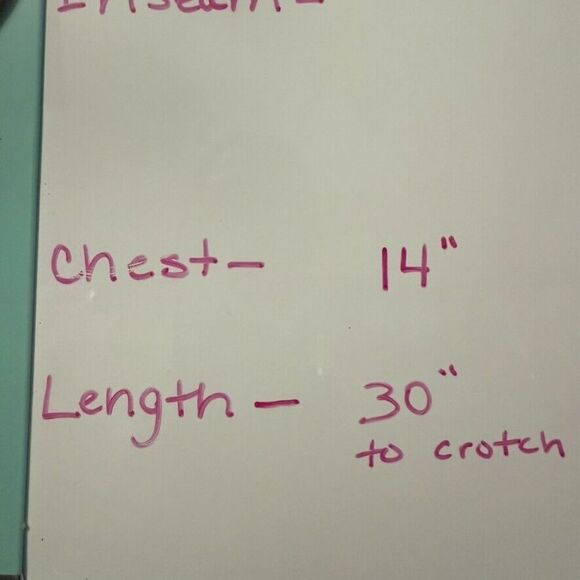 Inseam -
Chest- 14"
Length - 30"
to crotch